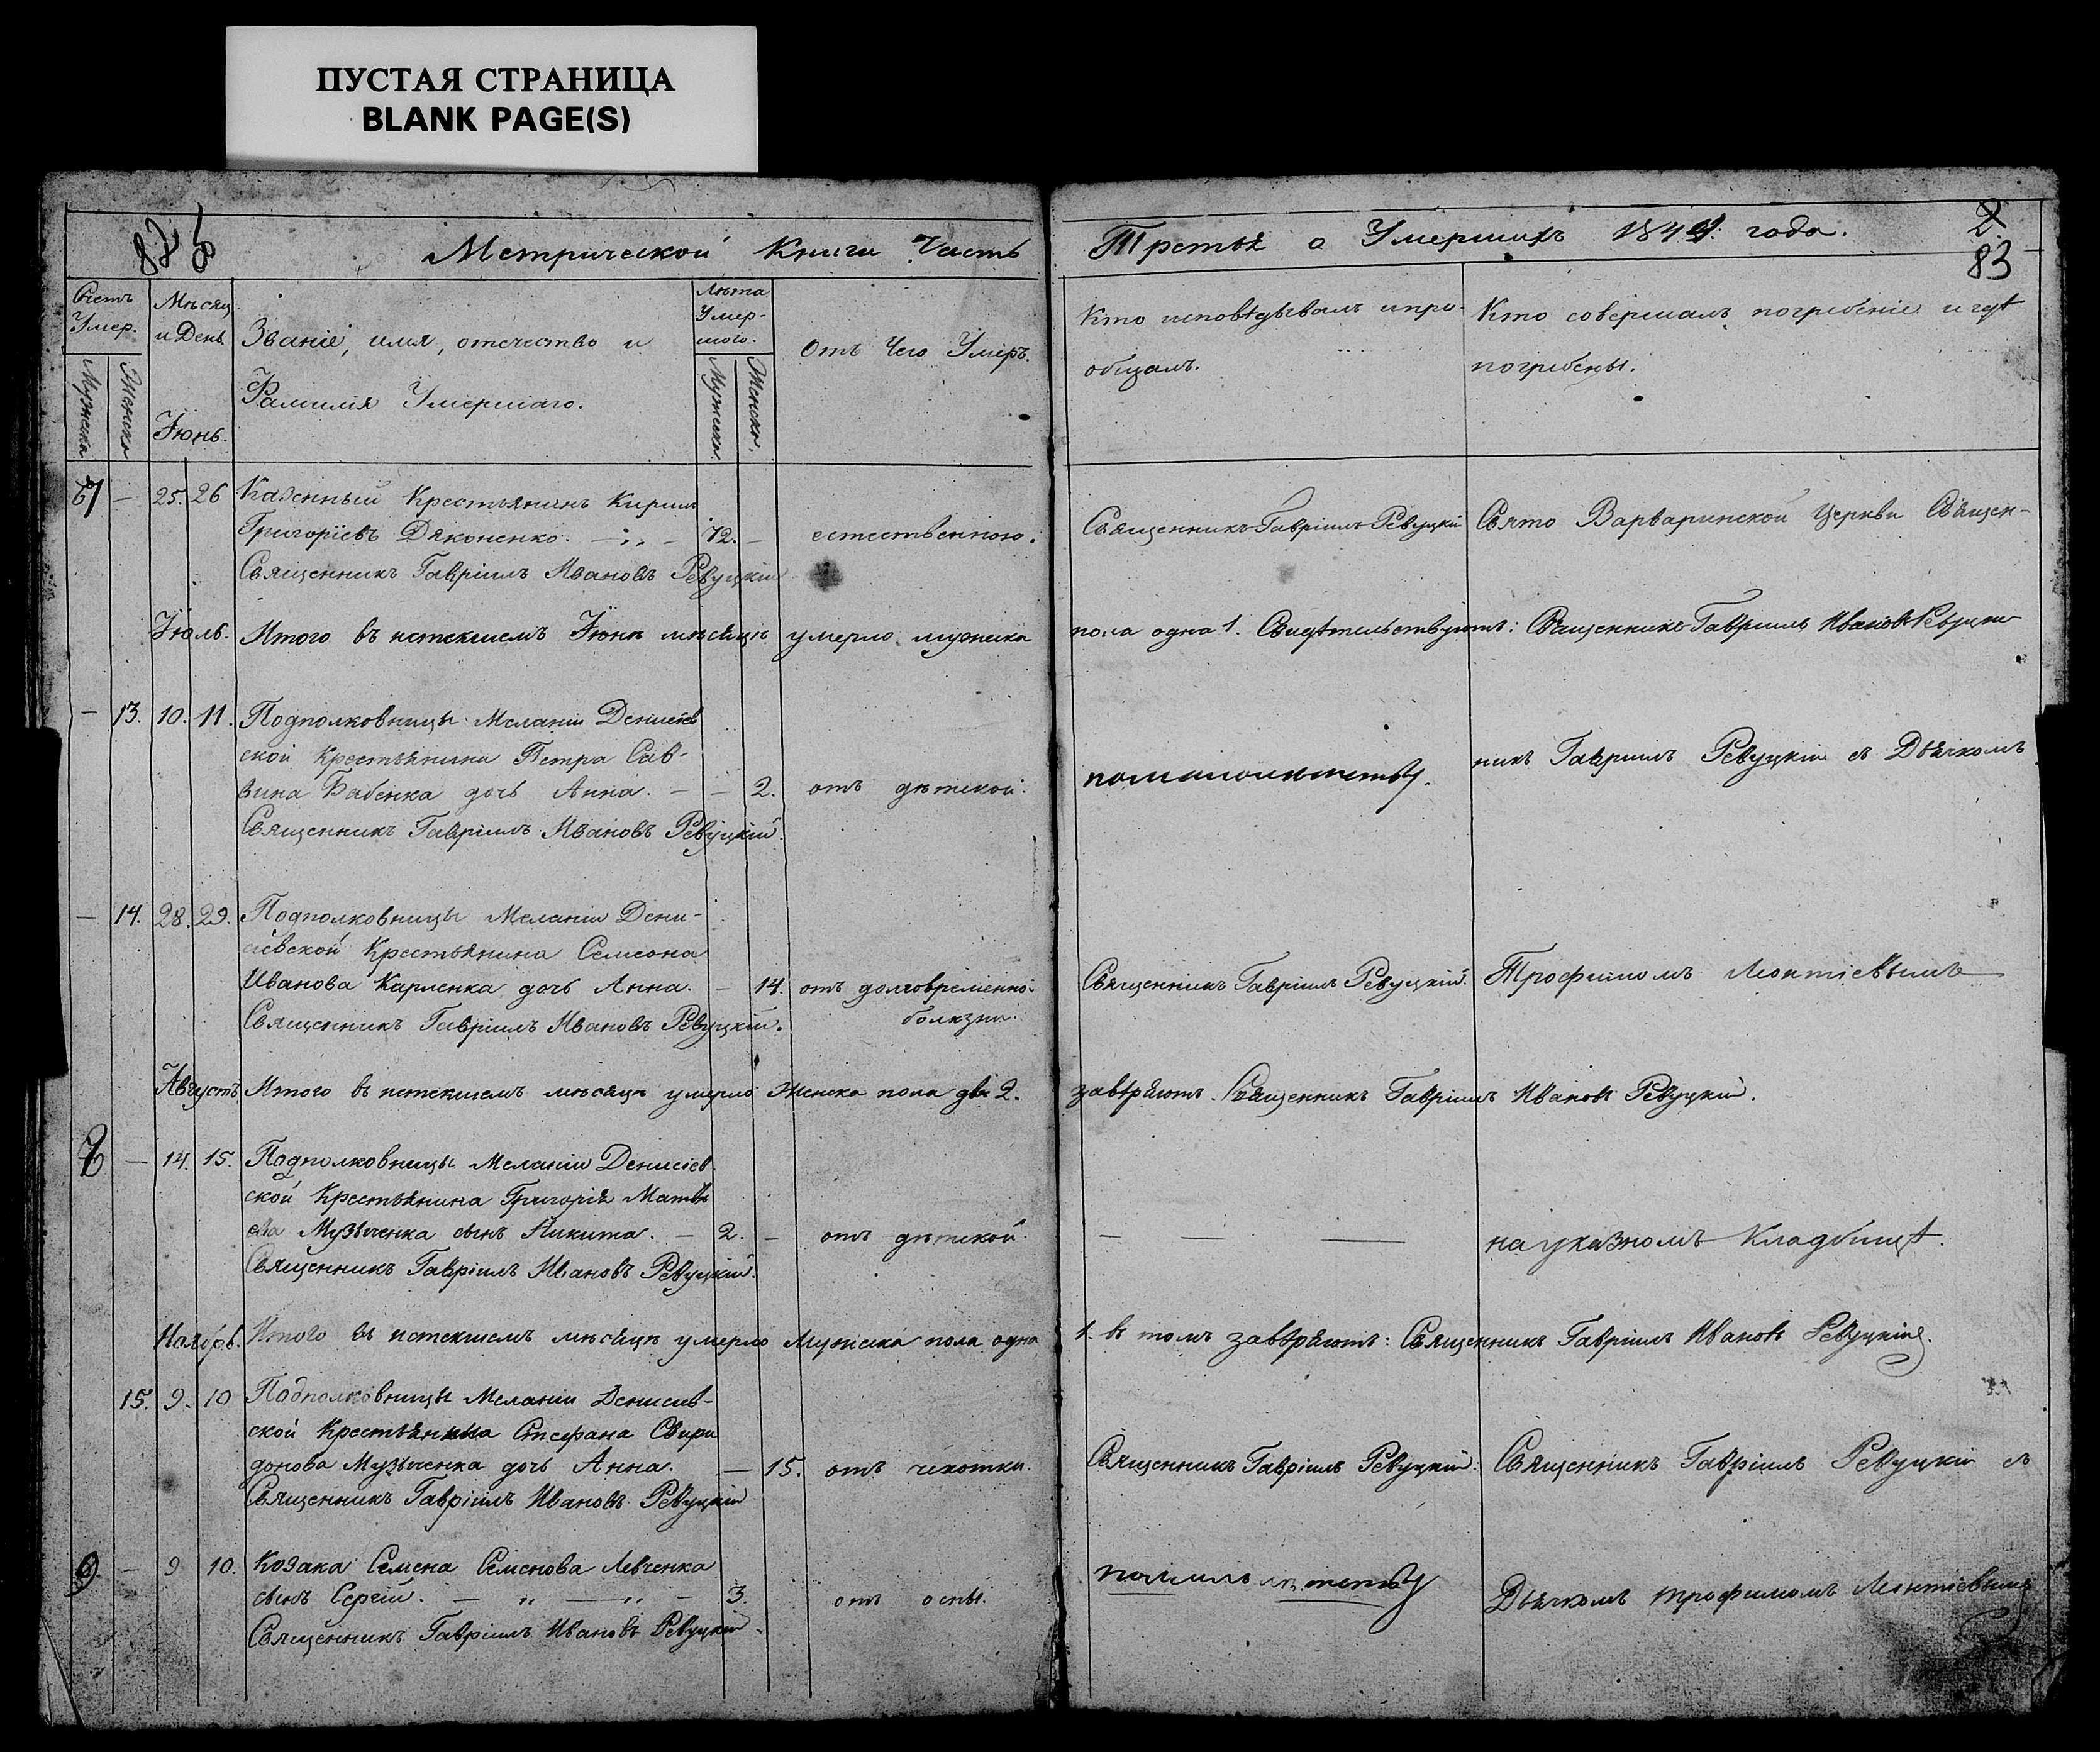 ПУСТАЯ СТРАНИЦА
BLANK PAGE(S)
82
Метрической Книги Часть
Счетъ Умер.
Мужска
Женска
Мѣсяц и День
Званіе, имя, отечество и
Фамилія Умершаго.
Лѣта Умер-шого.
Мужска.
Женска.
Отъ Чего Умеръ.
Іюнь.
25. 26 Казенный Крестьянинъ Кирил
Григоріевъ Дяконенко. 72. – естественною.
Священникъ Гавріилъ Ивановъ Ревуцкій
Іюль. Итого въ истекшемъ Іюнѣ мѣсяцѣ умерло мужска
– 13. 10. 11. Подполковницы Меланіи Денисіев
ской Крестьянина Петра Сав-
вина Бабенка дочь Анна. – – 2. отъ дѣтской.
Священникъ Гавріилъ Ивановъ Ревуцкій.
– 14. 28. 29. Подполковницы Меланіи Дени-
сіевской Крестьянина Семеона
Иванова Карпенка дочь Анна. – 14. отъ долговременной
Священникъ Гавріилъ Ивановъ Ревуцкій. болѣзни.
Августъ Итого въ истекшемъ мѣсяцѣ умерло Женска пола двѣ 2.
– 14. 15. Подполковницы Меланіи Денисіев
ской Крестьянина Григорія Матвѣ
ева Музыченка сынъ Никита. – 2. – отъ дѣтской.
Священникъ Гавріилъ Ивановъ Ревуцкій.
Ноябрь. Итого въ истекшемъ мѣсяцѣ умерло Мужска пола одна
15. 9. 10 Подполковницы Меланіи Денисіев-
ской Крестьянина Стефана Свири
донова Музыченка дочь Анна. — 15. отъ чехотки.
Священникъ Гавріилъ Ивановъ Ревуцкій
9. – 9 10. Козака Семена Семенова Левченка
сынъ Сергій. – „ — „ – 3. отъ оспы.
Священникъ Гавріилъ Ивановъ Ревуцкій
Третья о Умершихъ 184 года.
2.
83
Кто исповѣдывалъ и прі-
общалъ.
Кто совершалъ погребеніе и гдѣ
погребены.
Священникъ Гавріилъ Ревуцкій
Свято Варваринской Церкви Священ-
пола одна 1. Свидѣтельствуютъ: Священникъ Гавріилъ Ивановъ Ревуцкій
помалолѣтству.
никъ Гавріилъ Ревуцкій съ Дьячкомъ
Священникъ Гавріилъ Ревуцкій.
Трофимомъ Леонтіевымъ
завѣряютъ. Священникъ Гавріилъ Ивановъ Ревуцкій.
— — —
на указномъ Кладбищѣ.
1. въ томъ завѣряютъ: Священникъ Гавріилъ Ивановъ Ревуцкій.
Священникъ Гавріилъ Ревуцкій.
Священникъ Гавріилъ Ревуцкій съ
помалолѣтству
Дьячкомъ Трофимомъ Леонтіевымъ